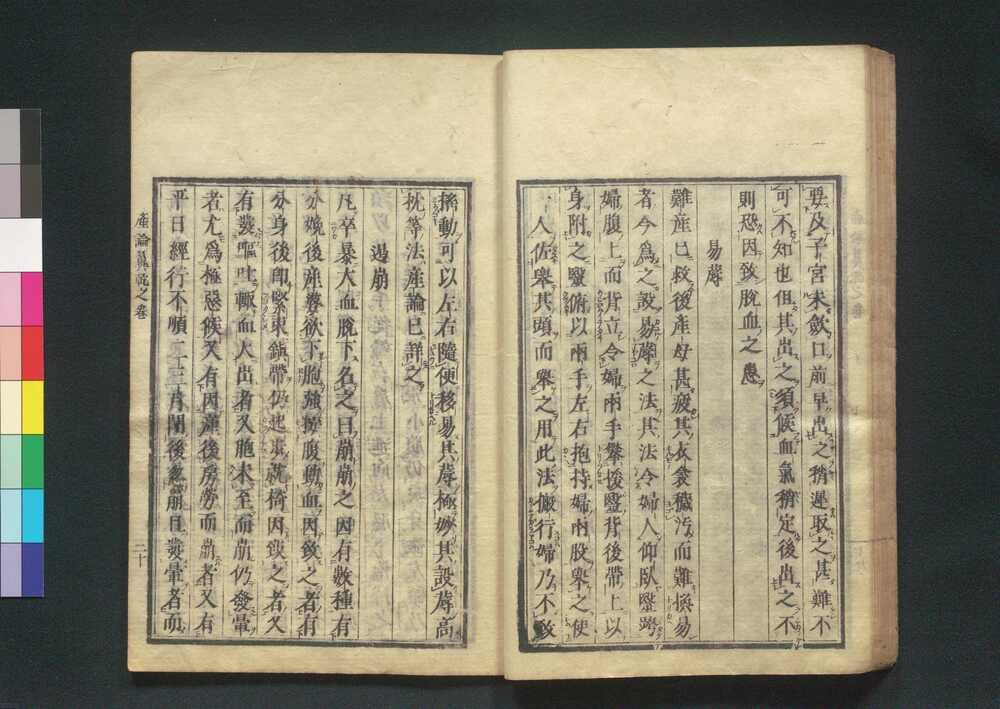 要及子宮未斂口前早出之稍遲取之甚難不
可不知也但其出之須候血氣稍定後出之不
則恐因致脫血之患
易蓐
難產已救後產母甚疲其衣衾穢污而難換易
者今為之設易蓐之法其法令婦人仰臥毉跨
婦腹上而背立令婦兩手攀援毉背後帶上以
身附之毉俯以兩手左右抱持婦兩股舉之使
一人佐舉其頭而舉之用此法儆行婦乃不致
搖動可以左右隨便移易其蓐極妙其設蓐高
枕等法產論已詳之
遏崩
凡卒暴大血脫下名之曰崩崩之因有數種有
分娩後產婆欲下胞強按腹動血因致之者有
分身後即緊束鎮帶仍起
就椅因致之者又
有發嘔吐輙血大出者又胞未至而崩仍發暈
者尤為極惡候又有因產後房勞而崩者又有
平日經行不順二三月閉後忽崩且發暈者而
產論翼乾之卷
二十